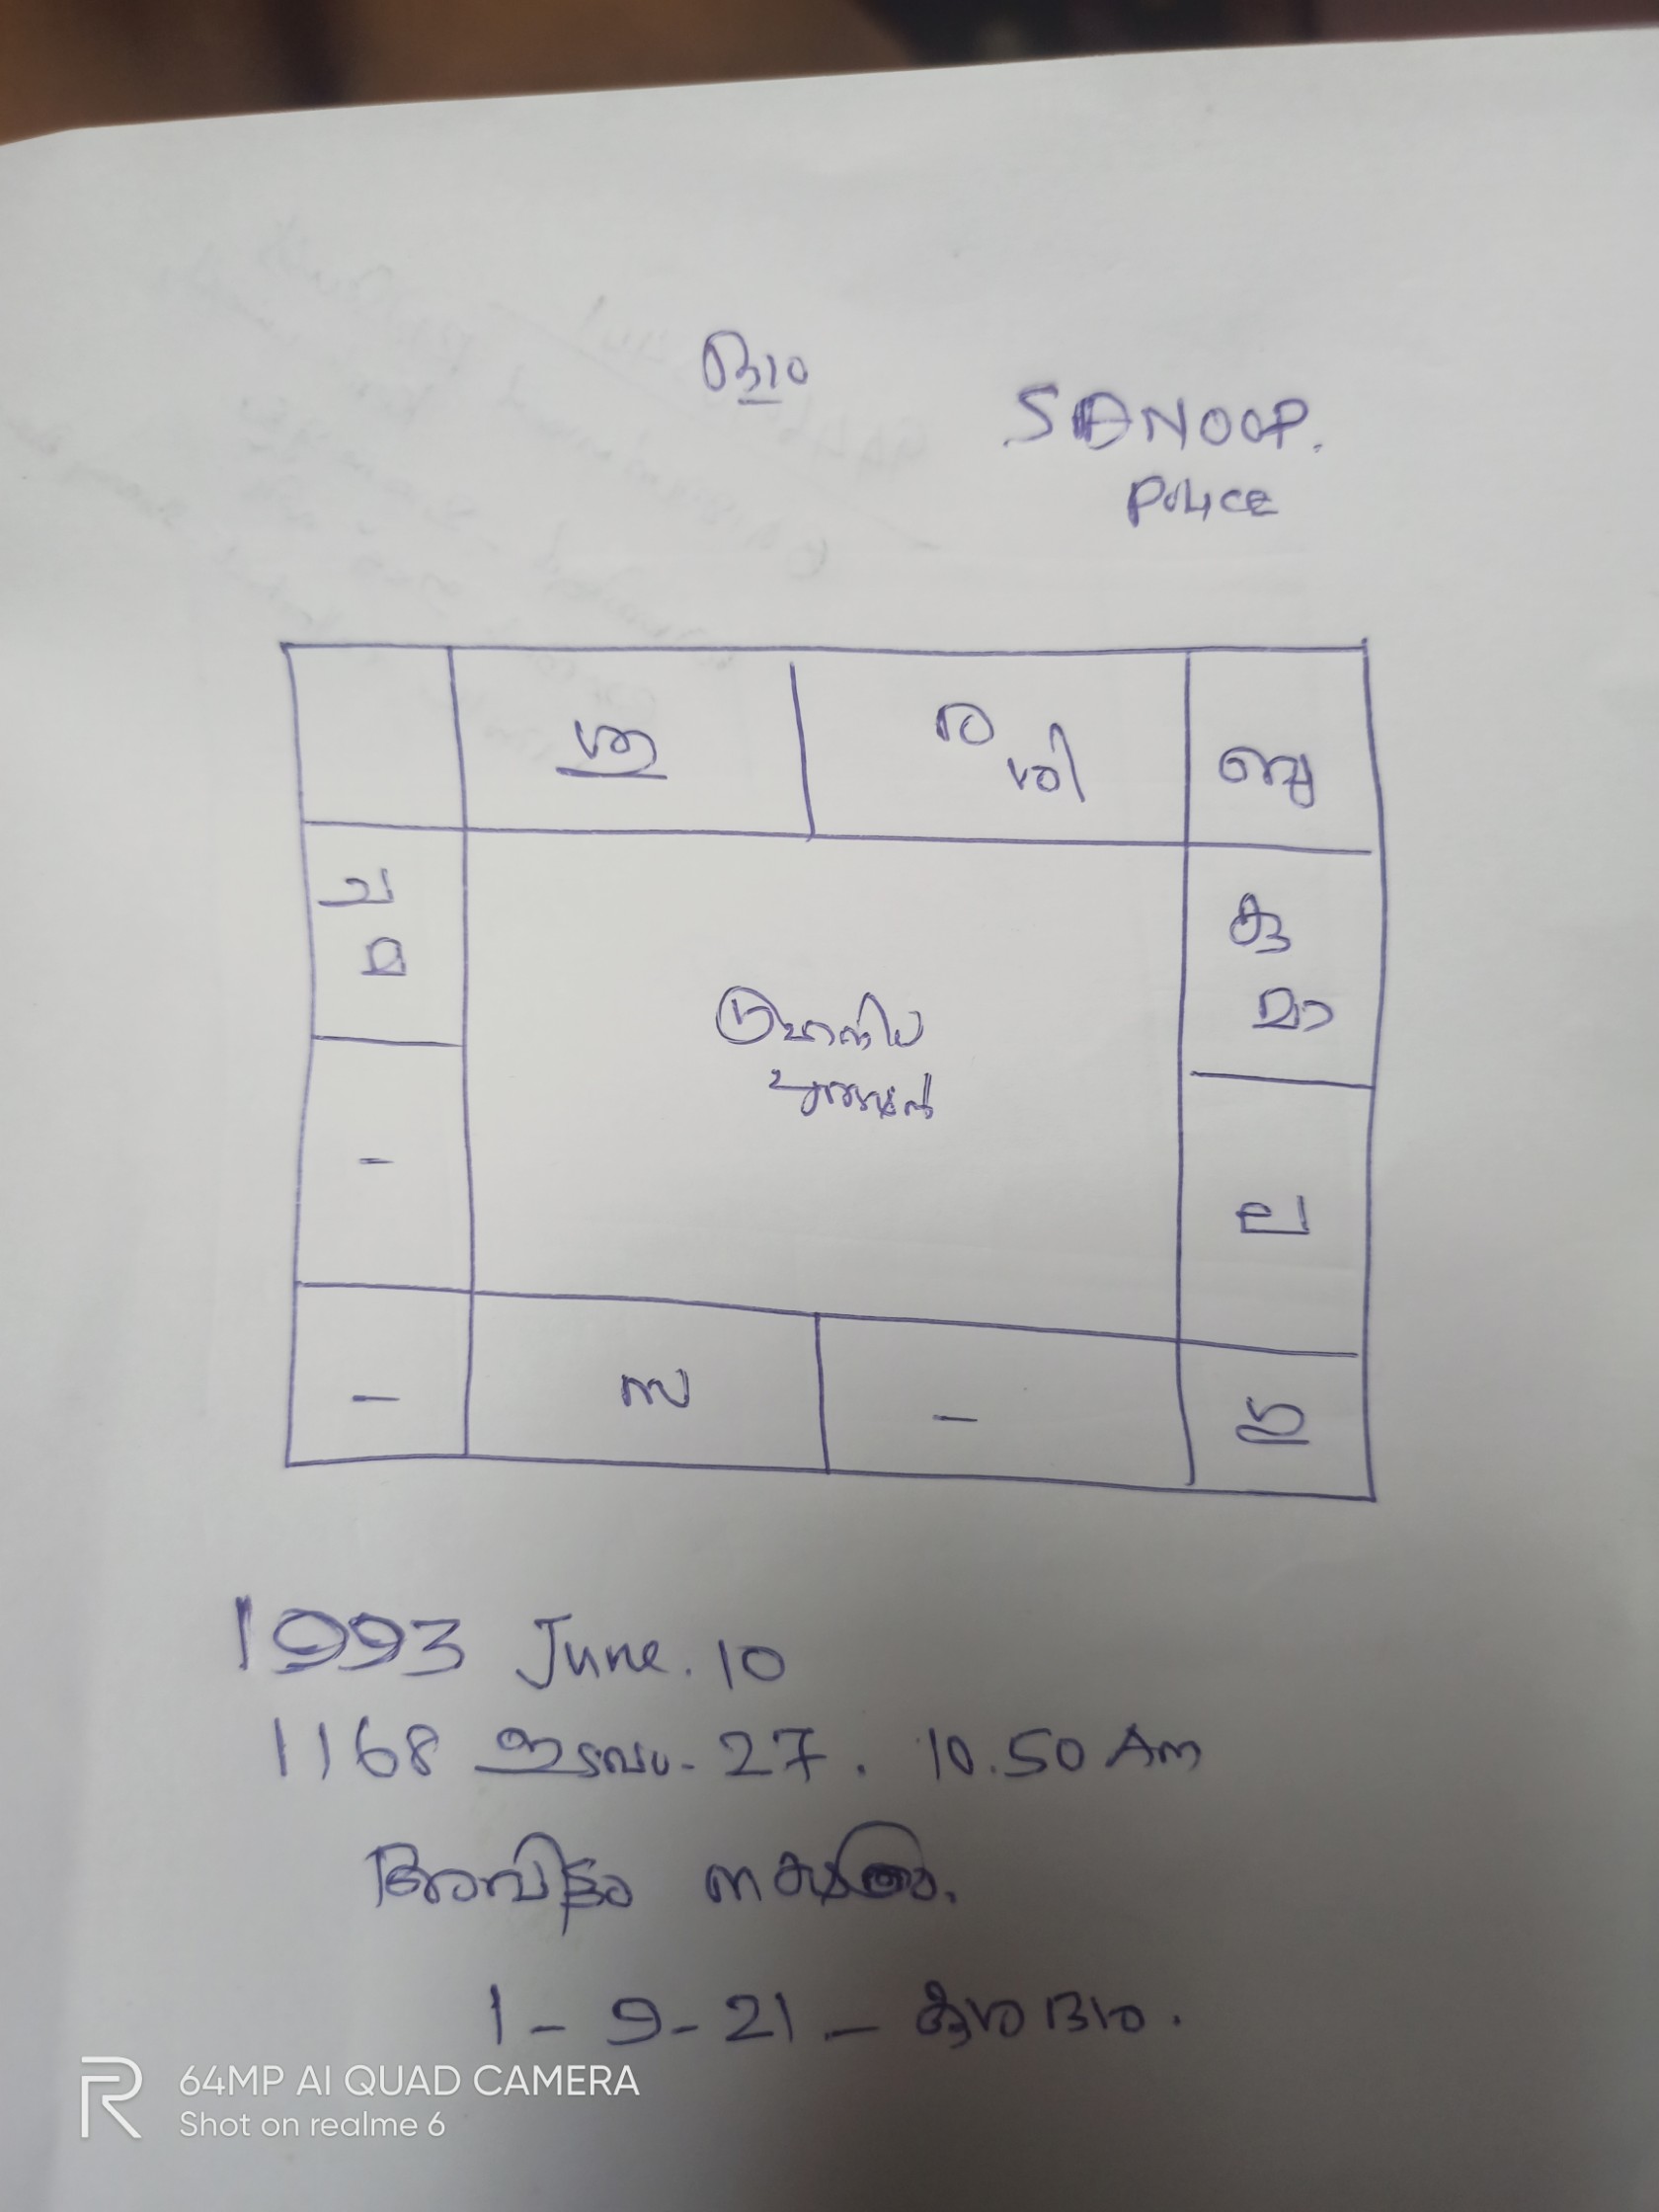 SANOOP.
POLICE
ശു
ര
ശി
ബു
ച
മ
കു
മാ
ല
സ
–
–
–
ഗു
1993 June. 10
1168 ഇടവം - 27. 10.50 Am
അവിട്ടം നക്ഷത്രം.
1 - 9 - 21 –
64MP AI QUAD CAMERA
Shot on realme 6